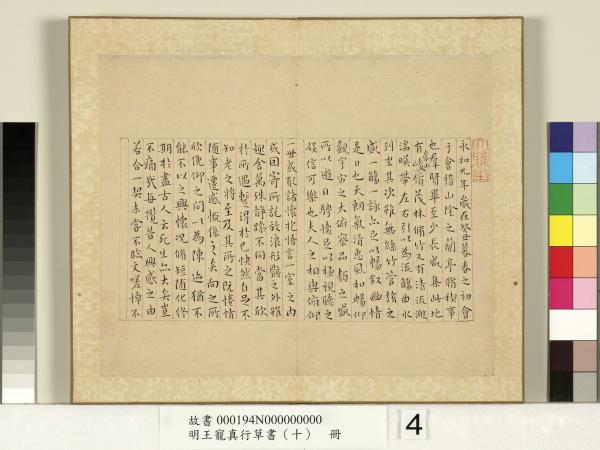 永和九年歲在癸丑暮春之初會
于會稽山陰之蘭亭脩禊事
也羣賢畢至少長咸集此地
有崇山峻領茂林脩竹又有清流激
湍暎帶左右引以為流觴曲水
列坐其次雖無絲竹管弦之
盛一觴一詠亦足以暢敘幽情
是日也天朗氣清惠風和暢仰
觀宇宙之大俯察品類之盛
所以遊目騁懷足以極視聽之
娛信可樂也夫人之相與俯仰
一世或取諸懷抱悟言一室之內
或因寄所託放浪形骸之外雖
趣舍萬殊靜躁不同當其欣
於所遇蹔得於己怏然自足不
知老之將至及其所之既惓情
隨事遷感慨係之矣向之所
欣俛仰之間以為陳迹猶不
能不以之興懷況脩短隨化終
期於盡古人云死生亦大矣豈
不痛哉每攬昔人興感之由
若合一契未嘗不臨文嗟悼不
故書 000194N000000000
明王寵真行草書（十） 冊
4